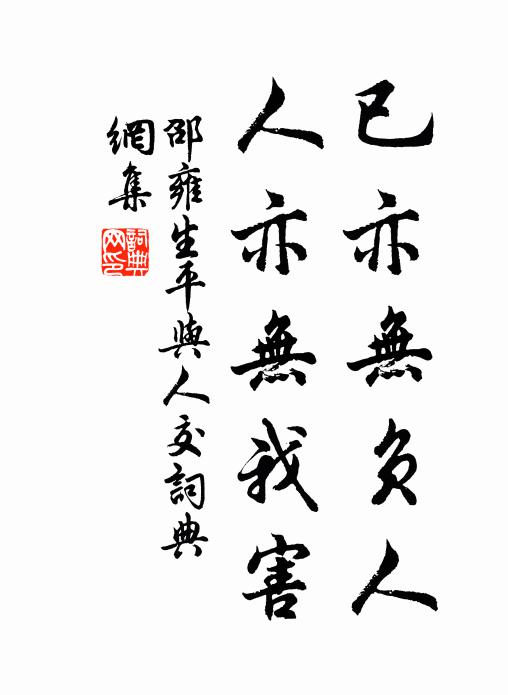 已亦無负人
人亦無我害
邵雍生平與人交詞典
網集
詞典網印